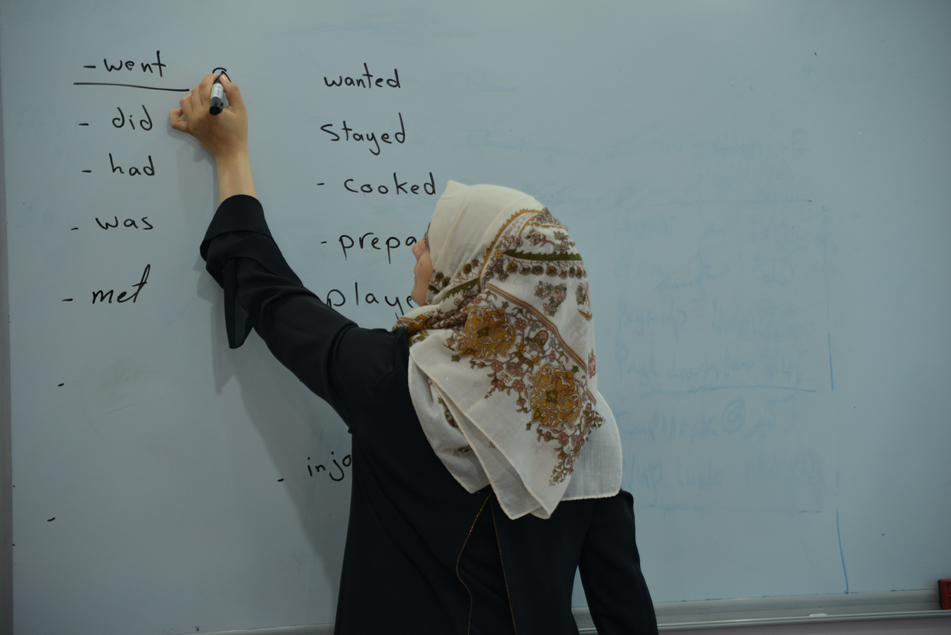 - went
- did
- had
- was
- met
wanted
Stayed
- cooked
- prepa
playe
- injo